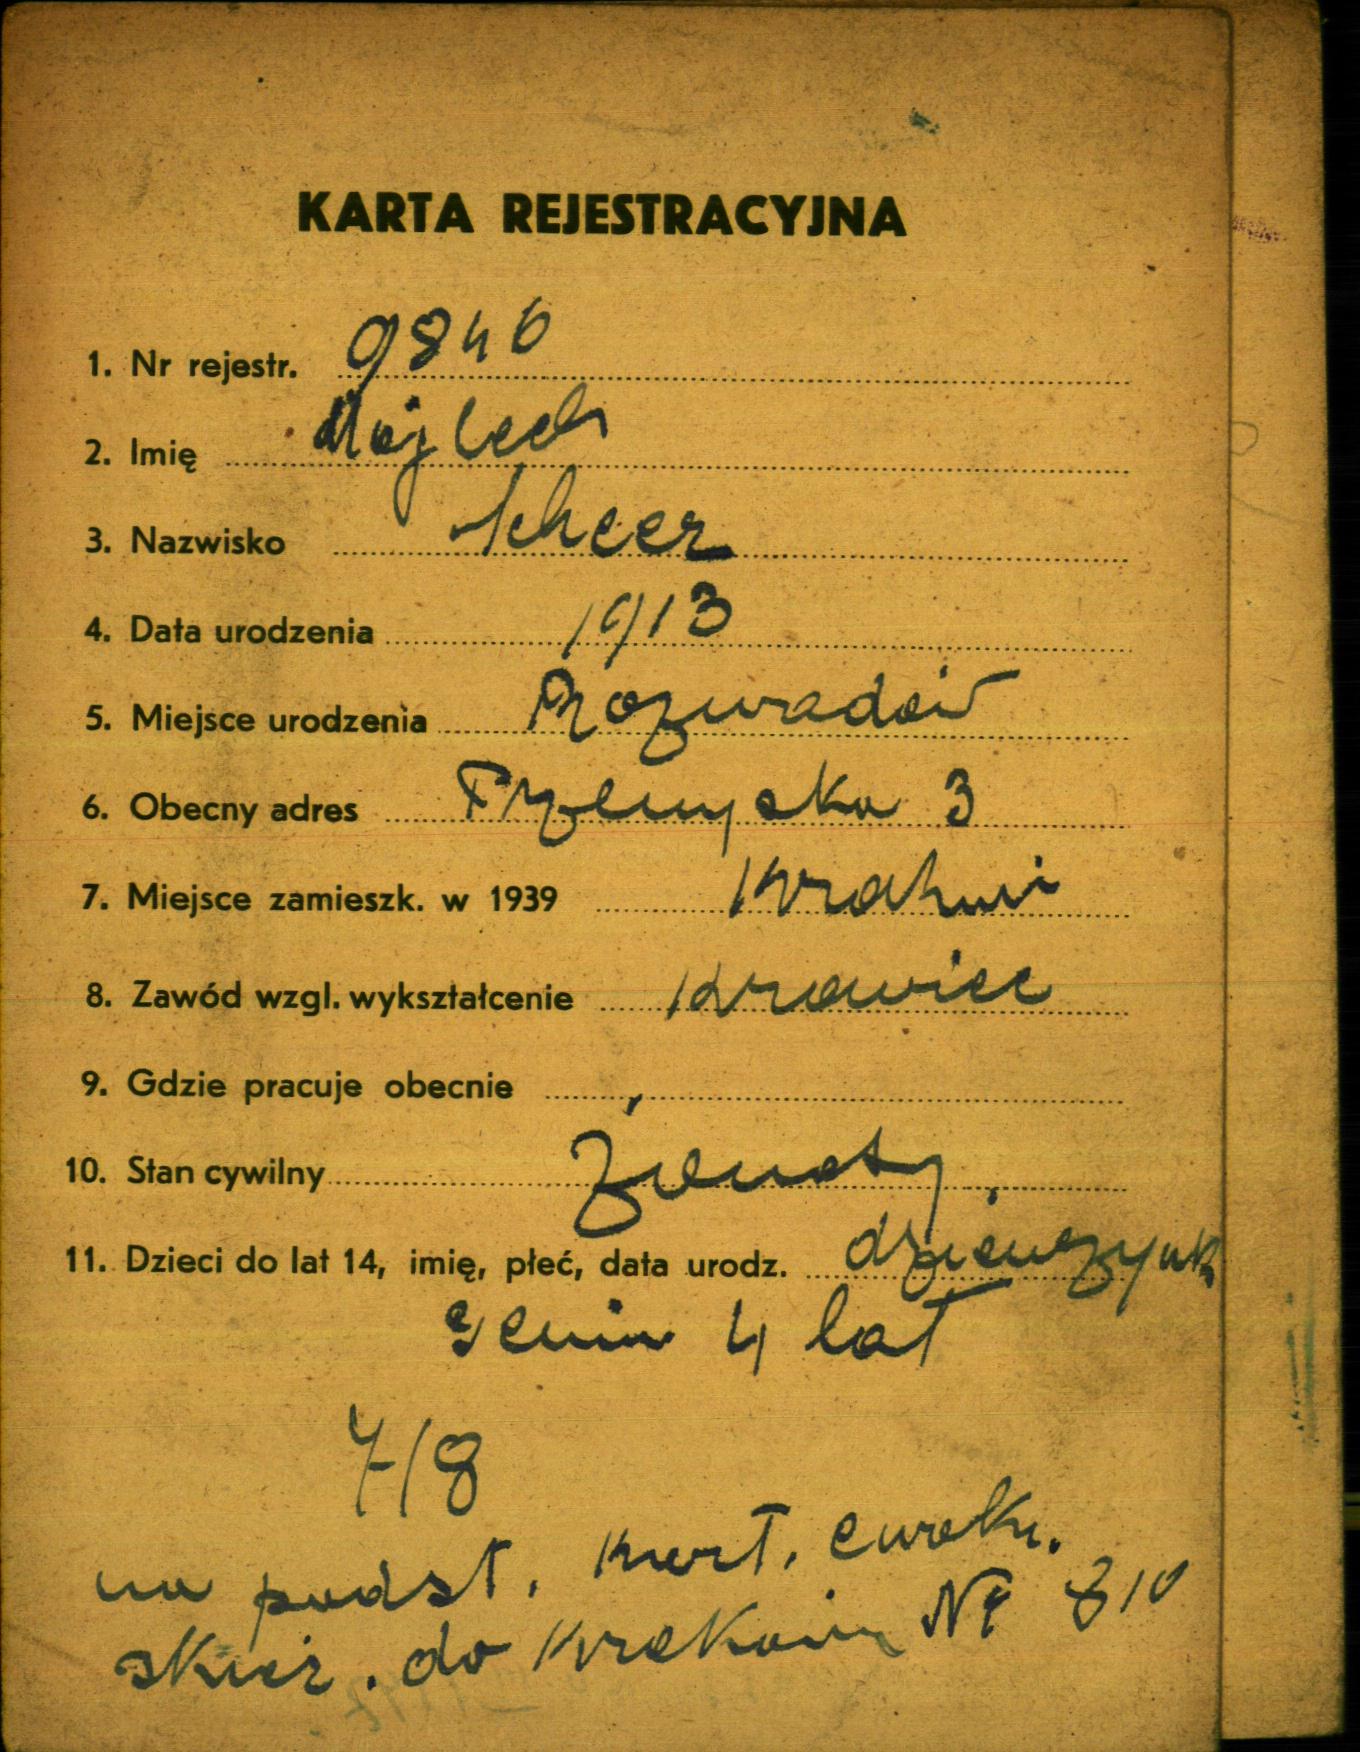 KARTA REJESTRACYJNA
1. Nr rejestr. 9846
2. Imię Mojżech
3. Nazwisko Scheer
4. Data urodzenia 1913
5. Miejsce urodzenia Rozwadów
6. Obecny adres Przemyska 3
7. Miejsce zamieszk. w 1939
8. Zawód wzgl. wykształcenie Krawiec
9. Gdzie pracuje obecnie
10. Stan cywilny Żonaty
11. Dzieci do lat 14, imię, płeć, data urodz. dziewczynk
4 lat
7/8
na podst. kart. ewak.
skier. do Krakowa Nr 810